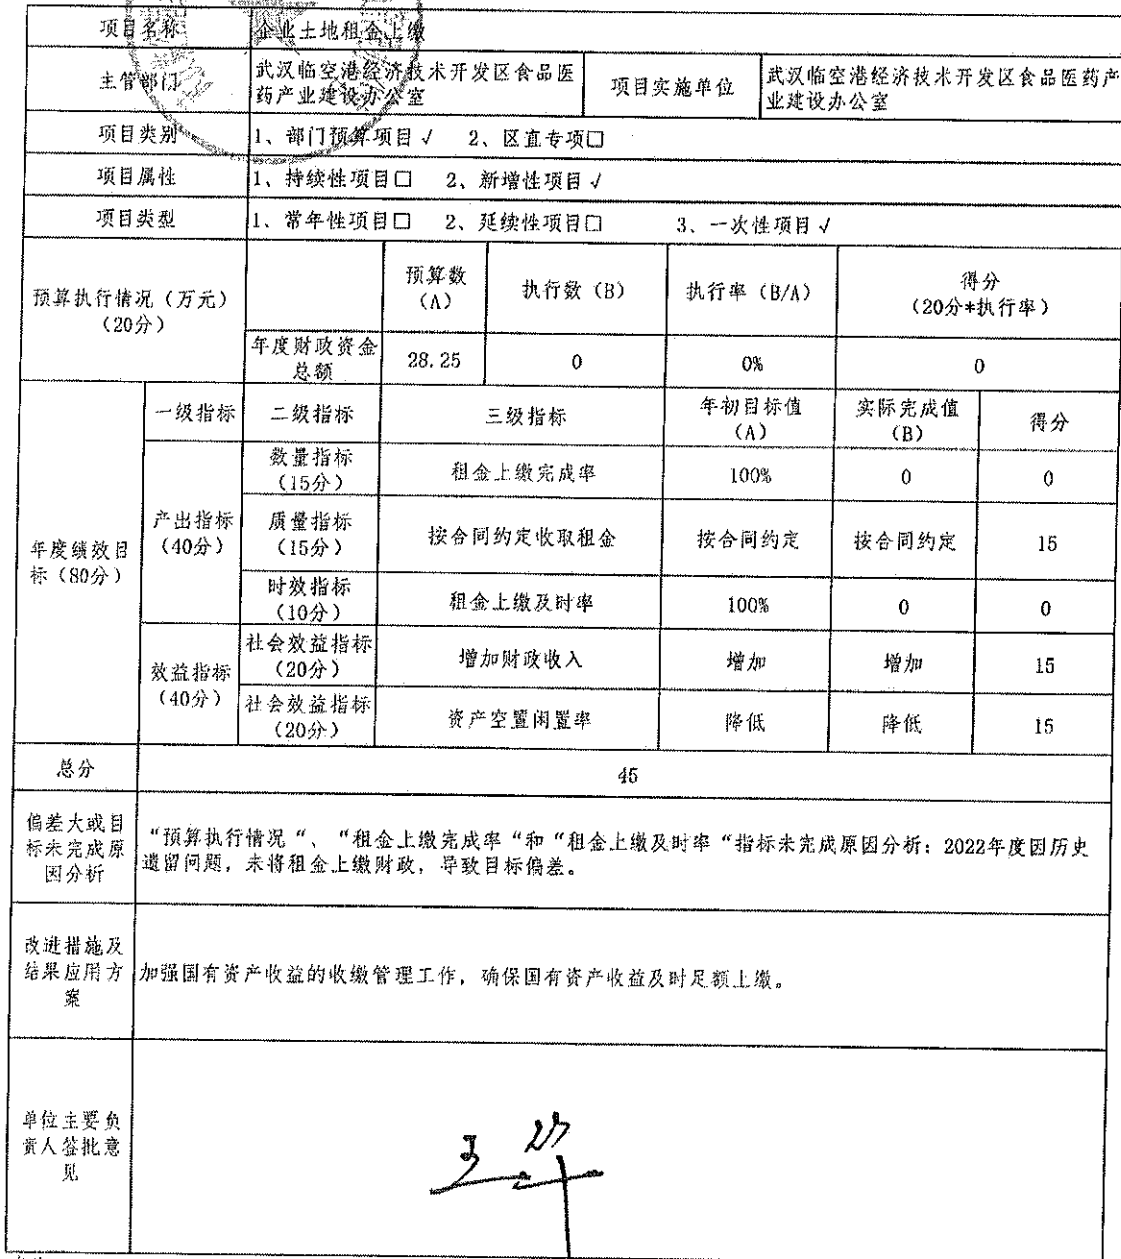 项目名称 企业土地租金上缴
主管部门 武汉临空港经济技术开发区食品医药产业建设办公室 项目实施单位 武汉临空港经济技术开发区食品医药产业建设办公室
项目类别 1、部门预算项目√ 2、区直专项□
项目属性 1、持续性项目□ 2、新增性项目√
项目类型 1、常年性项目□ 2、延续性项目□ 3、一次性项目√
预算执行情况（万元）（20分） 预算数（A） 执行数（B） 执行率（B/A） 得分（20分*执行率）
年度财政资金总额 28.25 0 0% 0
年度绩效目标（80分） 一级指标 二级指标 三级指标 年初目标值（A） 实际完成值（B） 得分
产出指标（40分） 数量指标（15分） 租金上缴完成率 100% 0 0
质量指标（15分） 按合同约定收取租金 按合同约定 按合同约定 15
时效指标（10分） 租金上缴及时率 100% 0 0
效益指标（40分） 社会效益指标（20分） 增加财政收入 增加 增加 15
社会效益指标（20分） 资产空置闲置率 降低 降低 15
总分 45
偏差大或目标未完成原因分析 “预算执行情况“、“租金上缴完成率“和“租金上缴及时率“指标未完成原因分析：2022年度因历史
遗留问题，未将租金上缴财政，导致目标偏差。
改进措施及结果应用方案 加强国有资产收益的收缴管理工作，确保国有资产收益及时足额上缴。
单位主要负责人签批意见